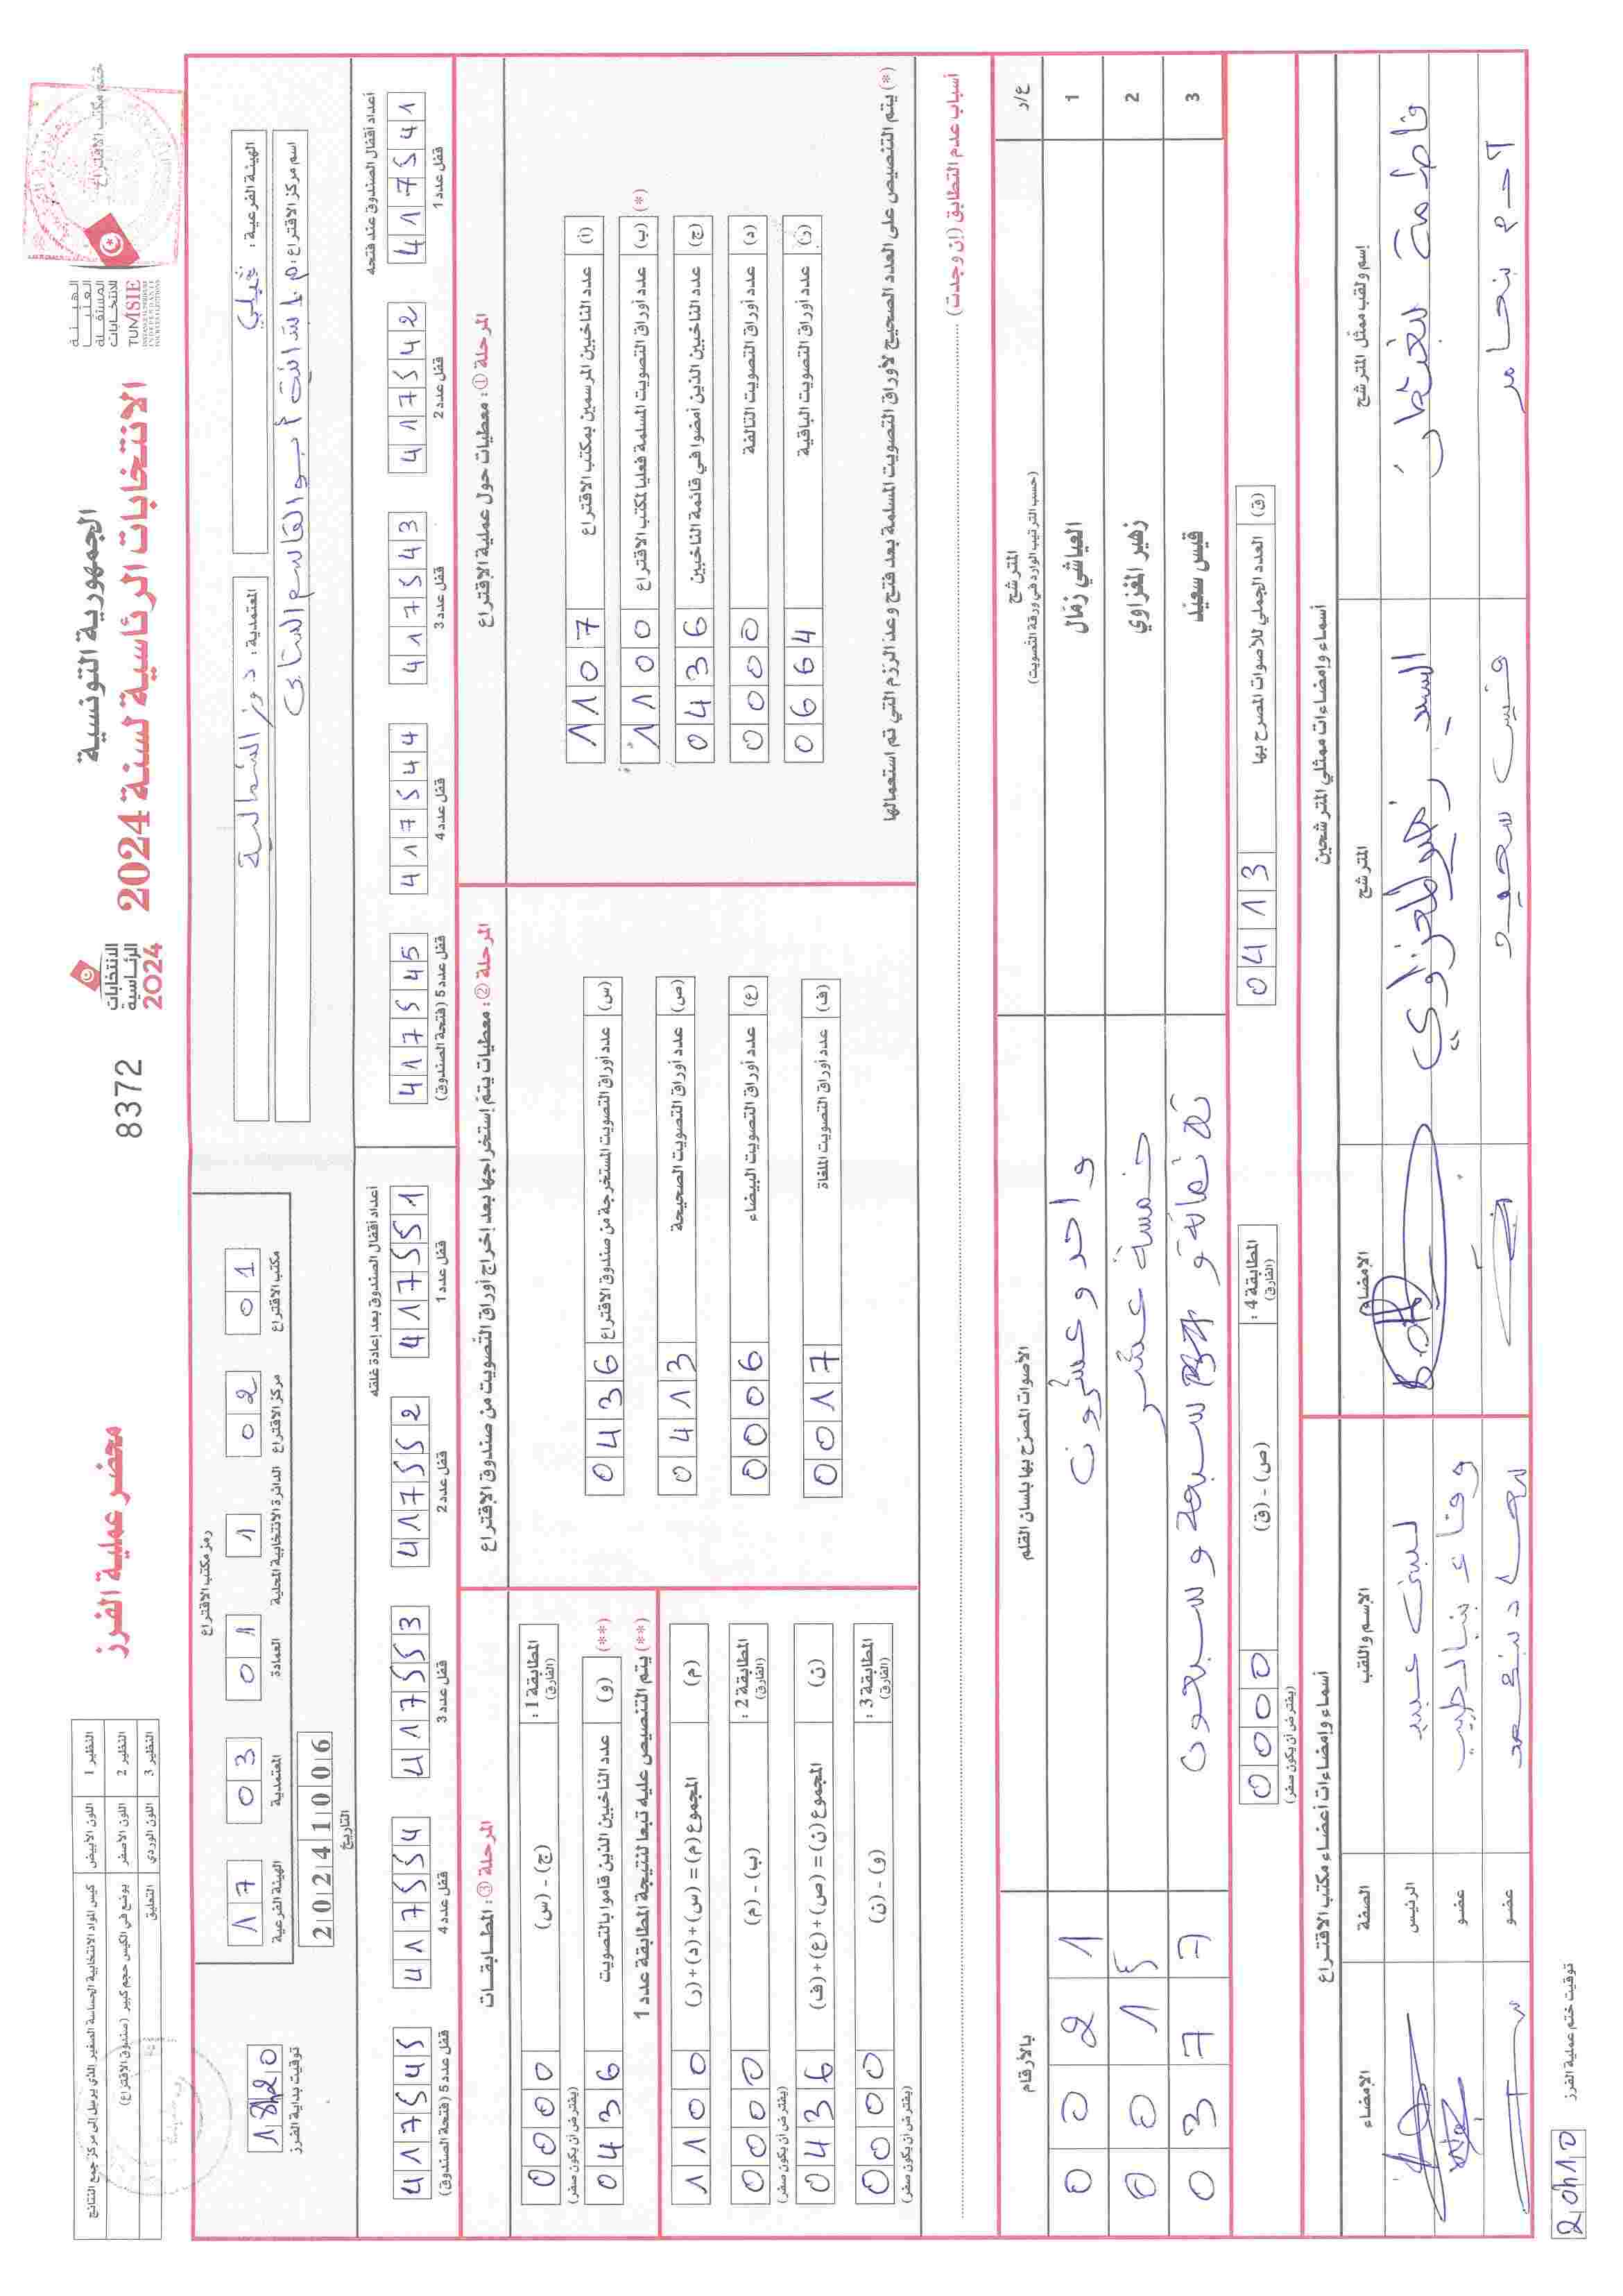 الجمهورية التونسية
الانتخابات الرئاسية لسنة 2024
الهيئة
العليا
المستقلة
للانتخابات
TUNISIE
ختم مكتب الاقتراع
الانتخابات
الرئاسية
2024
8372
محضر عملية الفرز
النظير 1 اللون الأبيض كيس المواد الانتخابية الحساسة الصغير الذي يرسل إلى مركز جمع النتائج
النظير 2 اللون الأصفر يوضع في الكيس حجم كبير (صندوق الاقتراع)
النظير 3 اللون الوردي التعليق
الهيئة الفرعية: قبلي
المعتمدية: دوز الشمالية
اسم مركز الاقتراع: م. إبتدائية أبو القاسم الشابي
رمز مكتب الاقتراع
مكتب الاقتراع 01
مركز الاقتراع 02
الدائرة الانتخابية المحلية 1
العمادة 01
المعتمدية 03
الهيئة الفرعية 17
التاريخ 20241006
توقيت بداية الفرز 18h20
أعداد أقفال الصندوق عند فتحه
417541 قفل عدد 1
417542 قفل عدد 2
417543 قفل عدد 3
417544 قفل عدد 4
417545 قفل عدد 5 (فتحة الصندوق)
أعداد أقفال الصندوق بعد إعادة غلقه
417551 قفل عدد 1
417552 قفل عدد 2
417553 قفل عدد 3
417554 قفل عدد 4
417545 قفل عدد 5 (فتحة الصندوق)
المرحلة ①: معطيات حول عملية الاقتراع
(أ) عدد الناخبين المرسمين بمكتب الاقتراع 1107
(*) (ب) عدد أوراق التصويت المسلمة فعليا لمكتب الاقتراع 1100
(ج) عدد الناخبين الذين أمضوا في قائمة الناخبين 0436
(د) عدد أوراق التصويت التالفة 0000
(ر) عدد أوراق التصويت الباقية 0664
(*) يتم التنصيص على العدد الصحيح لأوراق التصويت المسلمة بعد فتح وعد الرزم التي تم استعمالها
المرحلة ②: معطيات يتم إستخراجها بعد إخراج أوراق التصويت من صندوق الاقتراع
(س) عدد أوراق التصويت المستخرجة من صندوق الاقتراع 0436
(ص) عدد أوراق التصويت الصحيحة 0413
(ع) عدد أوراق التصويت البيضاء 0006
(ف) عدد أوراق التصويت الملغاة 0017
المرحلة ③: المطابقات
المطابقة 1: (الفارق) (ج) - (س) 0000
(يفترض أن يكون صفر)
(**) (و) عدد الناخبين الذين قاموا بالتصويت 0436
(**) يتم التنصيص عليه تبعا لنتيجة المطابقة عدد 1
(م) المجموع (م) = (س) + (د) + (ر) 1100
المطابقة 2: (الفارق) (ب) - (م) 0000
(يفترض أن يكون صفر)
(ن) المجموع (ن) = (ص) + (ع) + (ف) 0436
المطابقة 3: (الفارق) (و) - (ن) 0000
(يفترض أن يكون صفر)
أسباب عدم التطابق (إن وجدت)
ع/د المترشح الأصوات المصرح بها بلسان القلم بالأرقام
(حسب الترتيب الوارد في ورقة التصويت)
1 العياشي زمّال واحد وعشرون 0021
2 زهير المغزاوي خمسة عشر 0015
3 قيس سعيّد ثلاثمائة و سبعة وسبعون 0377
(ق) العدد الجملي للأصوات المصرح بها 0413
المطابقة 4: (الفارق) (ص) - (ق) 0000
(يفترض أن يكون صفر)
أسماء وإمضاءات ممثلي المترشحين
إسم ولقب ممثل المترشح المترشح الإمضاء
فاطمة السيد زهير المغزاوي
قيس سعيد
أسماء وإمضاءات أعضاء مكتب الاقتراع
الإسم واللقب الصفة الإمضاء
لبنى عبيد الرئيس
وفاء بنبالطيب عضو
عضو
توقيت ختم عملية الفرز 20h10